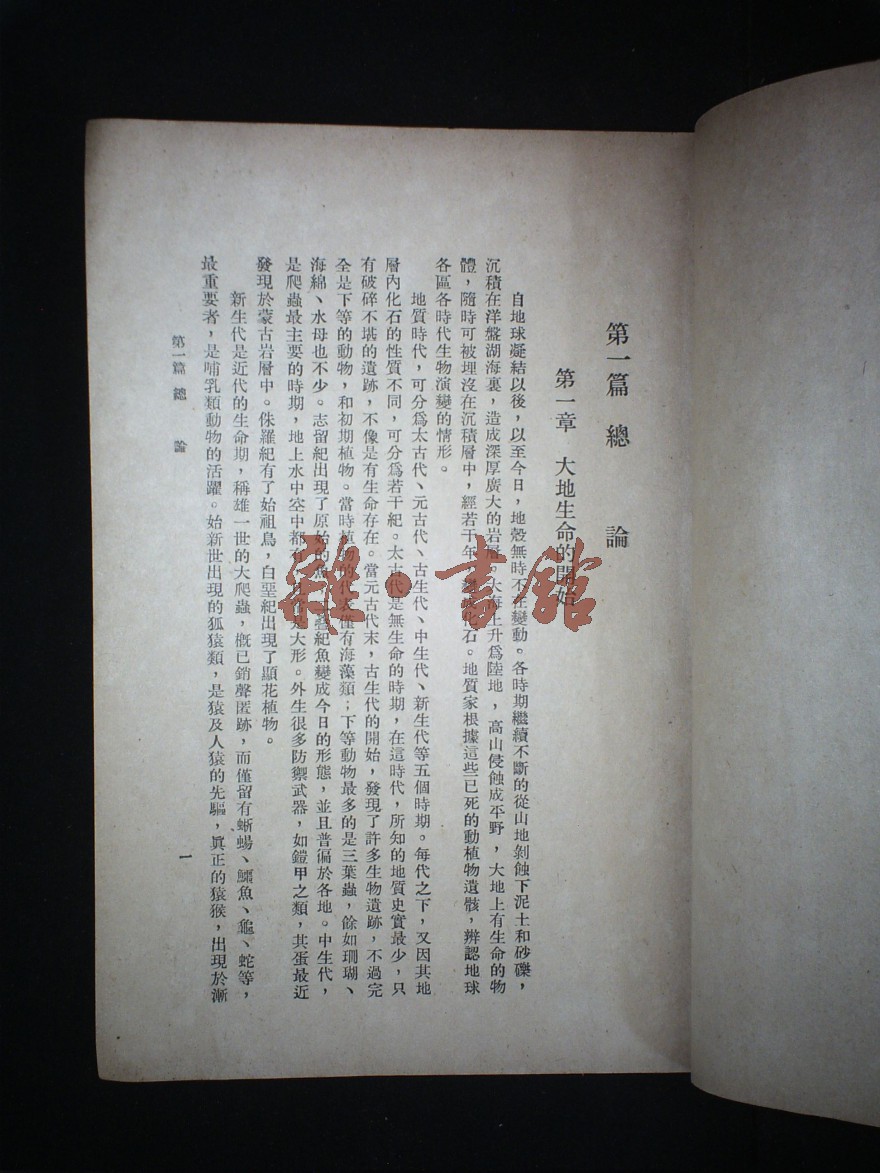 第一篇 總 論
第一章 大地生命的開始
自地球凝結以後，以至今日，地殼無時不在變動。各時期繼續不斷的從山地剝蝕下泥土和砂礫，
沉積在洋盤湖海裏，造成深厚廣大的岩層，大海上升爲陸地，高山侵蝕成平野，大地上有生命的物
體，隨時可被埋沒在沉積層中，經若干年，變成化石。地質家根據這些已死的動植物遺骸，辨認地球
各區各時代生物演變的情形。
地質時代，可分爲太古代、元古代、古生代、中生代、新生代等五個時期。每代之下，又因其地
層內化石的性質不同，可分爲若干紀。太古代是無生命的時期，在這時代，所知的地質史實最少，只
有破碎不堪的遺跡，不像是有生命存在。當元古代末，古生代的開始，發現了許多生物遺跡，不過完
全是下等的動物，和初期植物。當時植物的代表僅有海藻類；下等動物最多的是三葉蟲，餘如珊瑚、
海綿、水母也不少。志留紀出現了原始的魚，疊紀魚變成今日的形態，並且普徧於各地。中生代，
是爬蟲最主要的時期，地上水中空中都有，是大形。外生很多防禦武器，如鎧甲之類，其蛋最近
發現於蒙古岩層中。侏羅紀有了始祖鳥，白堊紀出現了顯花植物。
新生代是近代的生命期，稱雄一世的大爬蟲，概已銷聲匿跡，而僅留有蜥蜴、鱷魚、龜、蛇等，
最重要者，是哺乳類動物的活躍。始新世出現的狐猿類，是猿及人猿的先驅，眞正的猿猴，出現於漸
第一篇 總 論
一
雜·書館